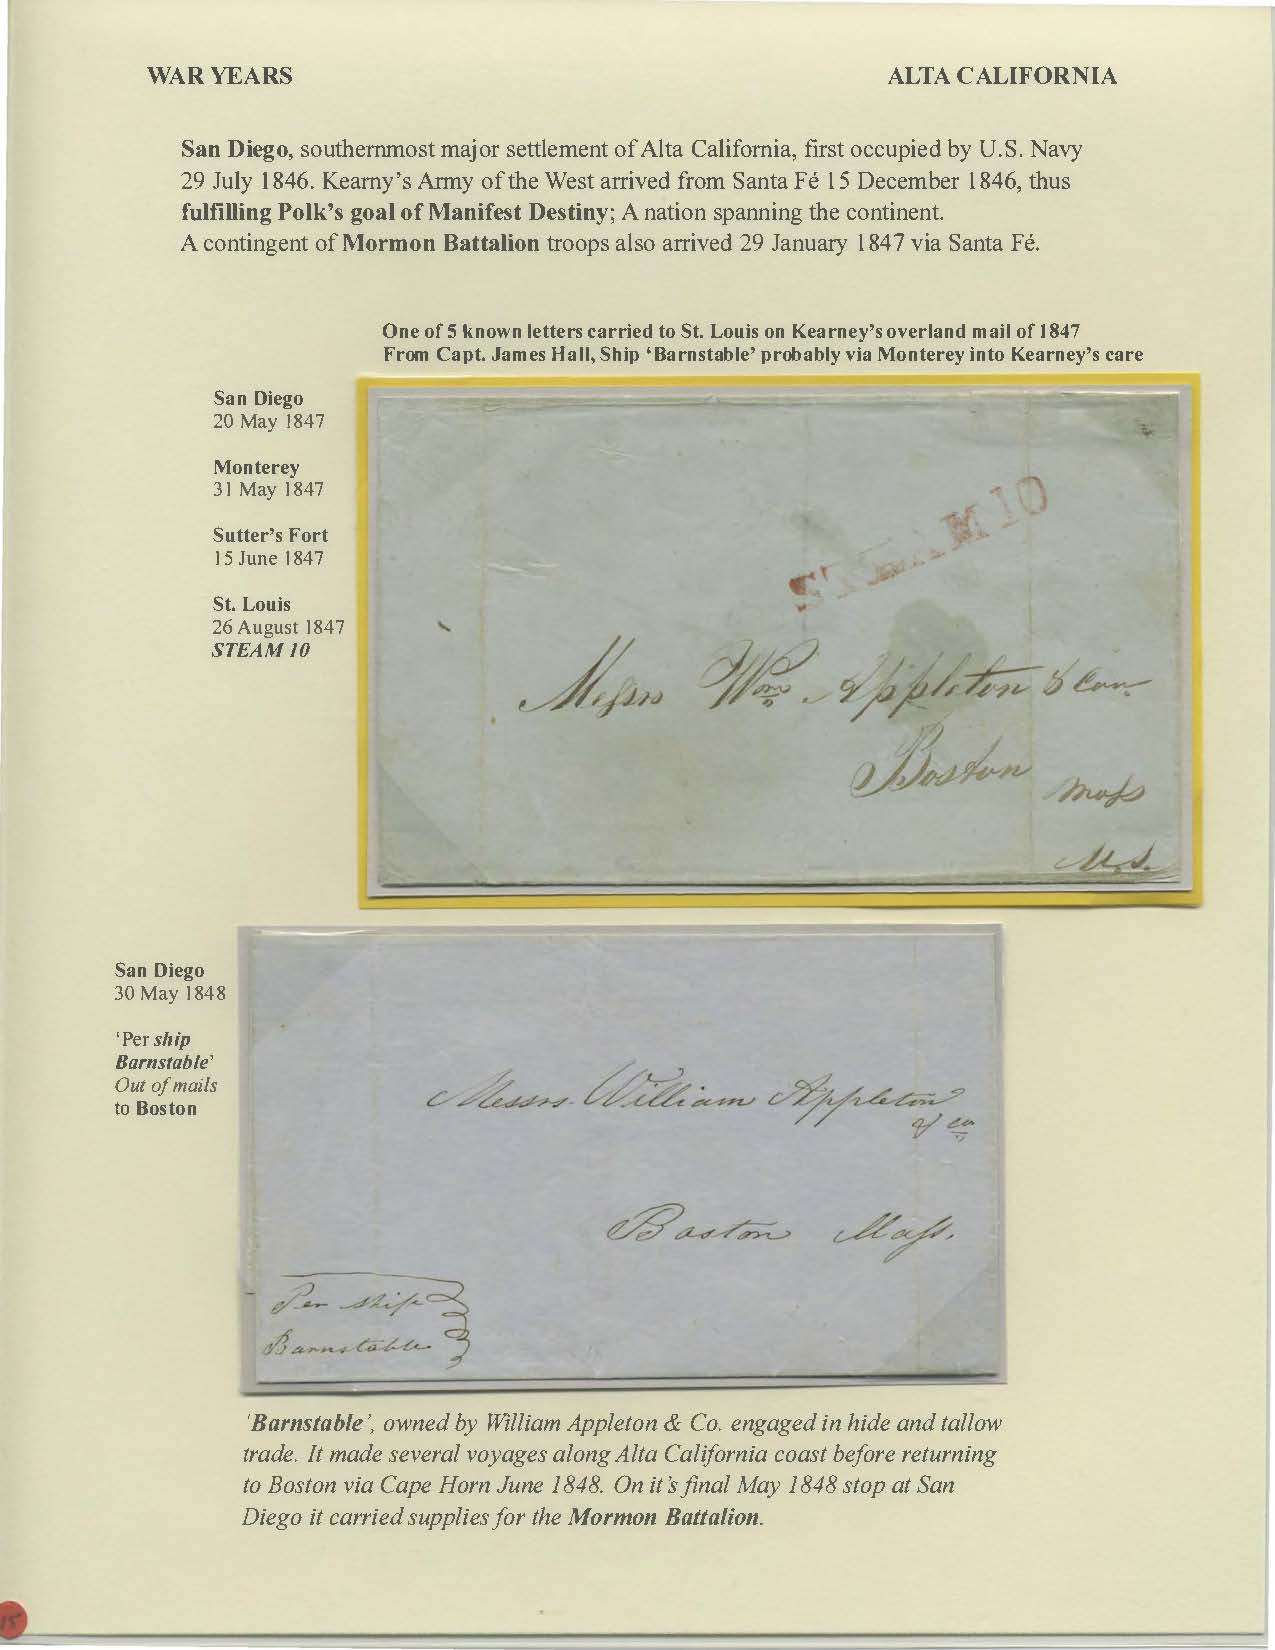 WAR YEARS
ALTA CALIFORNIA
San Diego, southernmost major settlement of Alta California, first occupied by U.S. Navy
29 July 1846. Kearny's Army of the West arrived from Santa Fé 15 December 1846, thus
fulfilling Polk's goal of Manifest Destiny; A nation spanning the continent.
A contingent of Mormon Battalion troops also arrived 29 January 1847 via Santa Fé.
One of 5 known letters carried to St. Louis on Kearney's overland mail of 1847
From Capt. James Hall, Ship 'Barnstable' probably via Monterey into Kearney's care
San Diego
20 May 1847
Monterey
31 May 1847
Sutter's Fort
15 June 1847
St. Louis
26 August 1847
STEAM 10
STEAM 10
Messrs Wm Appleton & Com
Boston
Mass
U.S.
San Diego
30 May 1848
'Per ship
Barnstable'
Out of mails
to Boston
Messrs. William Appleton
& Co
Boston Mass.
Per ship
Barnstable
'Barnstable', owned by William Appleton & Co. engaged in hide and tallow
trade. It made several voyages along Alta California coast before returning
to Boston via Cape Horn June 1848. On it's final May 1848 stop at San
Diego it carried supplies for the Mormon Battalion.
15